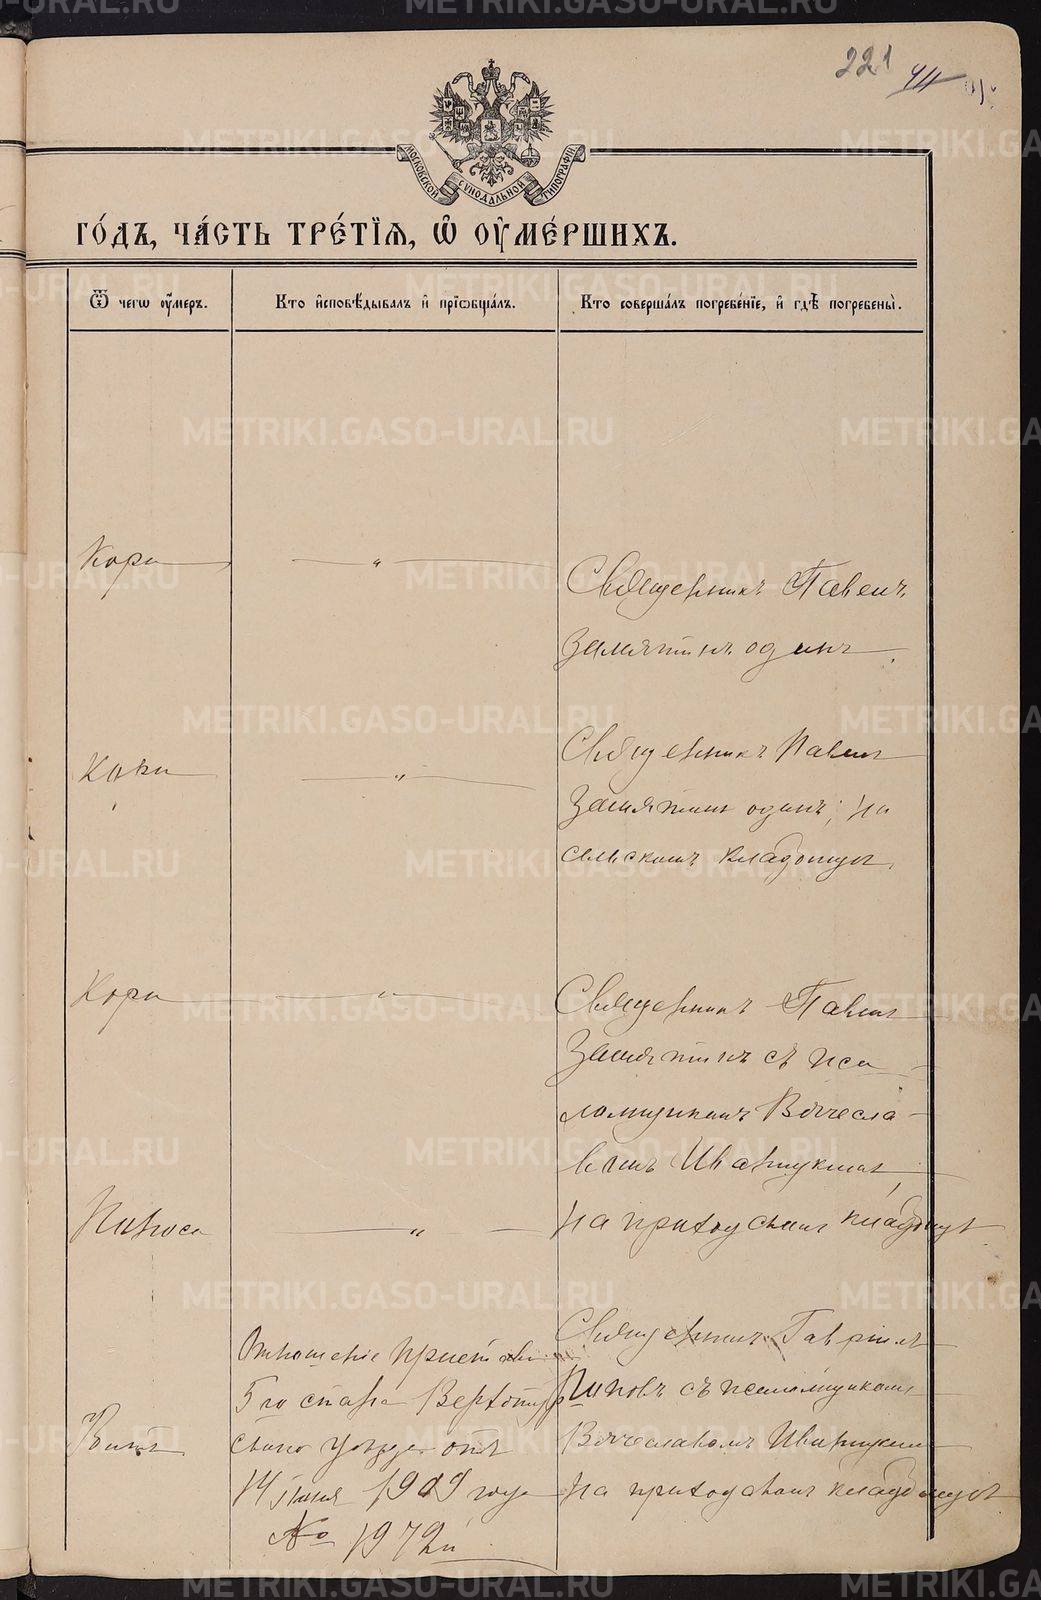 221 44
МОСКОВСКОЙ СѴНОДАЛЬНОЙ ТИПОГРАФІИ
ГО́ДЪ, ЧА́СТЬ ТРЕ́ТІѦ, Ѡ҆ ОУ҆МЕ́РШИХЪ.
Ѿ чегѡ оу҆́меръ.
Кто и҆сповѣ́дывалъ и҆ прїѡбща́лъ.
Кто соверша́лъ погребе́нїе, и҆ гдѣ̀ погребены̀.
Кори
Священникъ Павелъ
Замятинъ одинъ.
Кори
Священникъ Павелъ
Замятинъ одинъ, на
сельскомъ кладбищѣ.
Кори
Священникъ Павелъ
Замятинъ съ пса-
ломщикомъ Вячесла-
вомъ Иваницкимъ
на приходскомъ кладбищѣ
Поноса
Отношеніе Пристава
5го стана Верхотур
скаго уѣзда отъ
14 Іюня 1909 года
№ 1972й
Священникъ Гавріилъ
Поповъ съ псаломщикомъ
Вячеславомъ Иваницкимъ
на приходскомъ кладбищѣ
METRIKI.GASO-URAL.RU